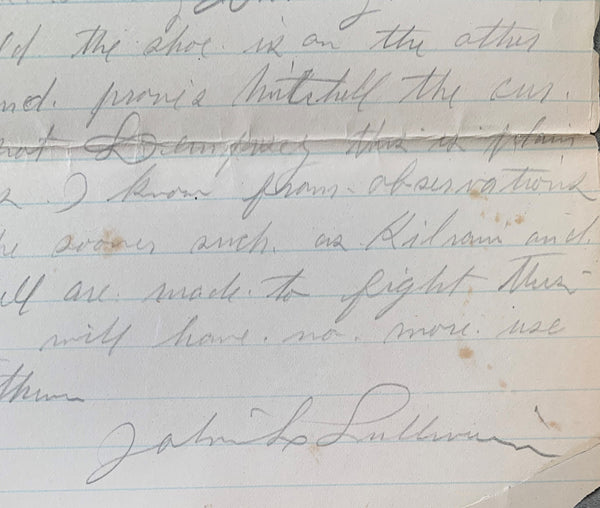 the shoe is on the other
proves Mitchell the cur.
not Dempsey this is plain
I know from observations
sooner such as Kilrain and
are made to fight
will have no more use
them
John L Sullivan